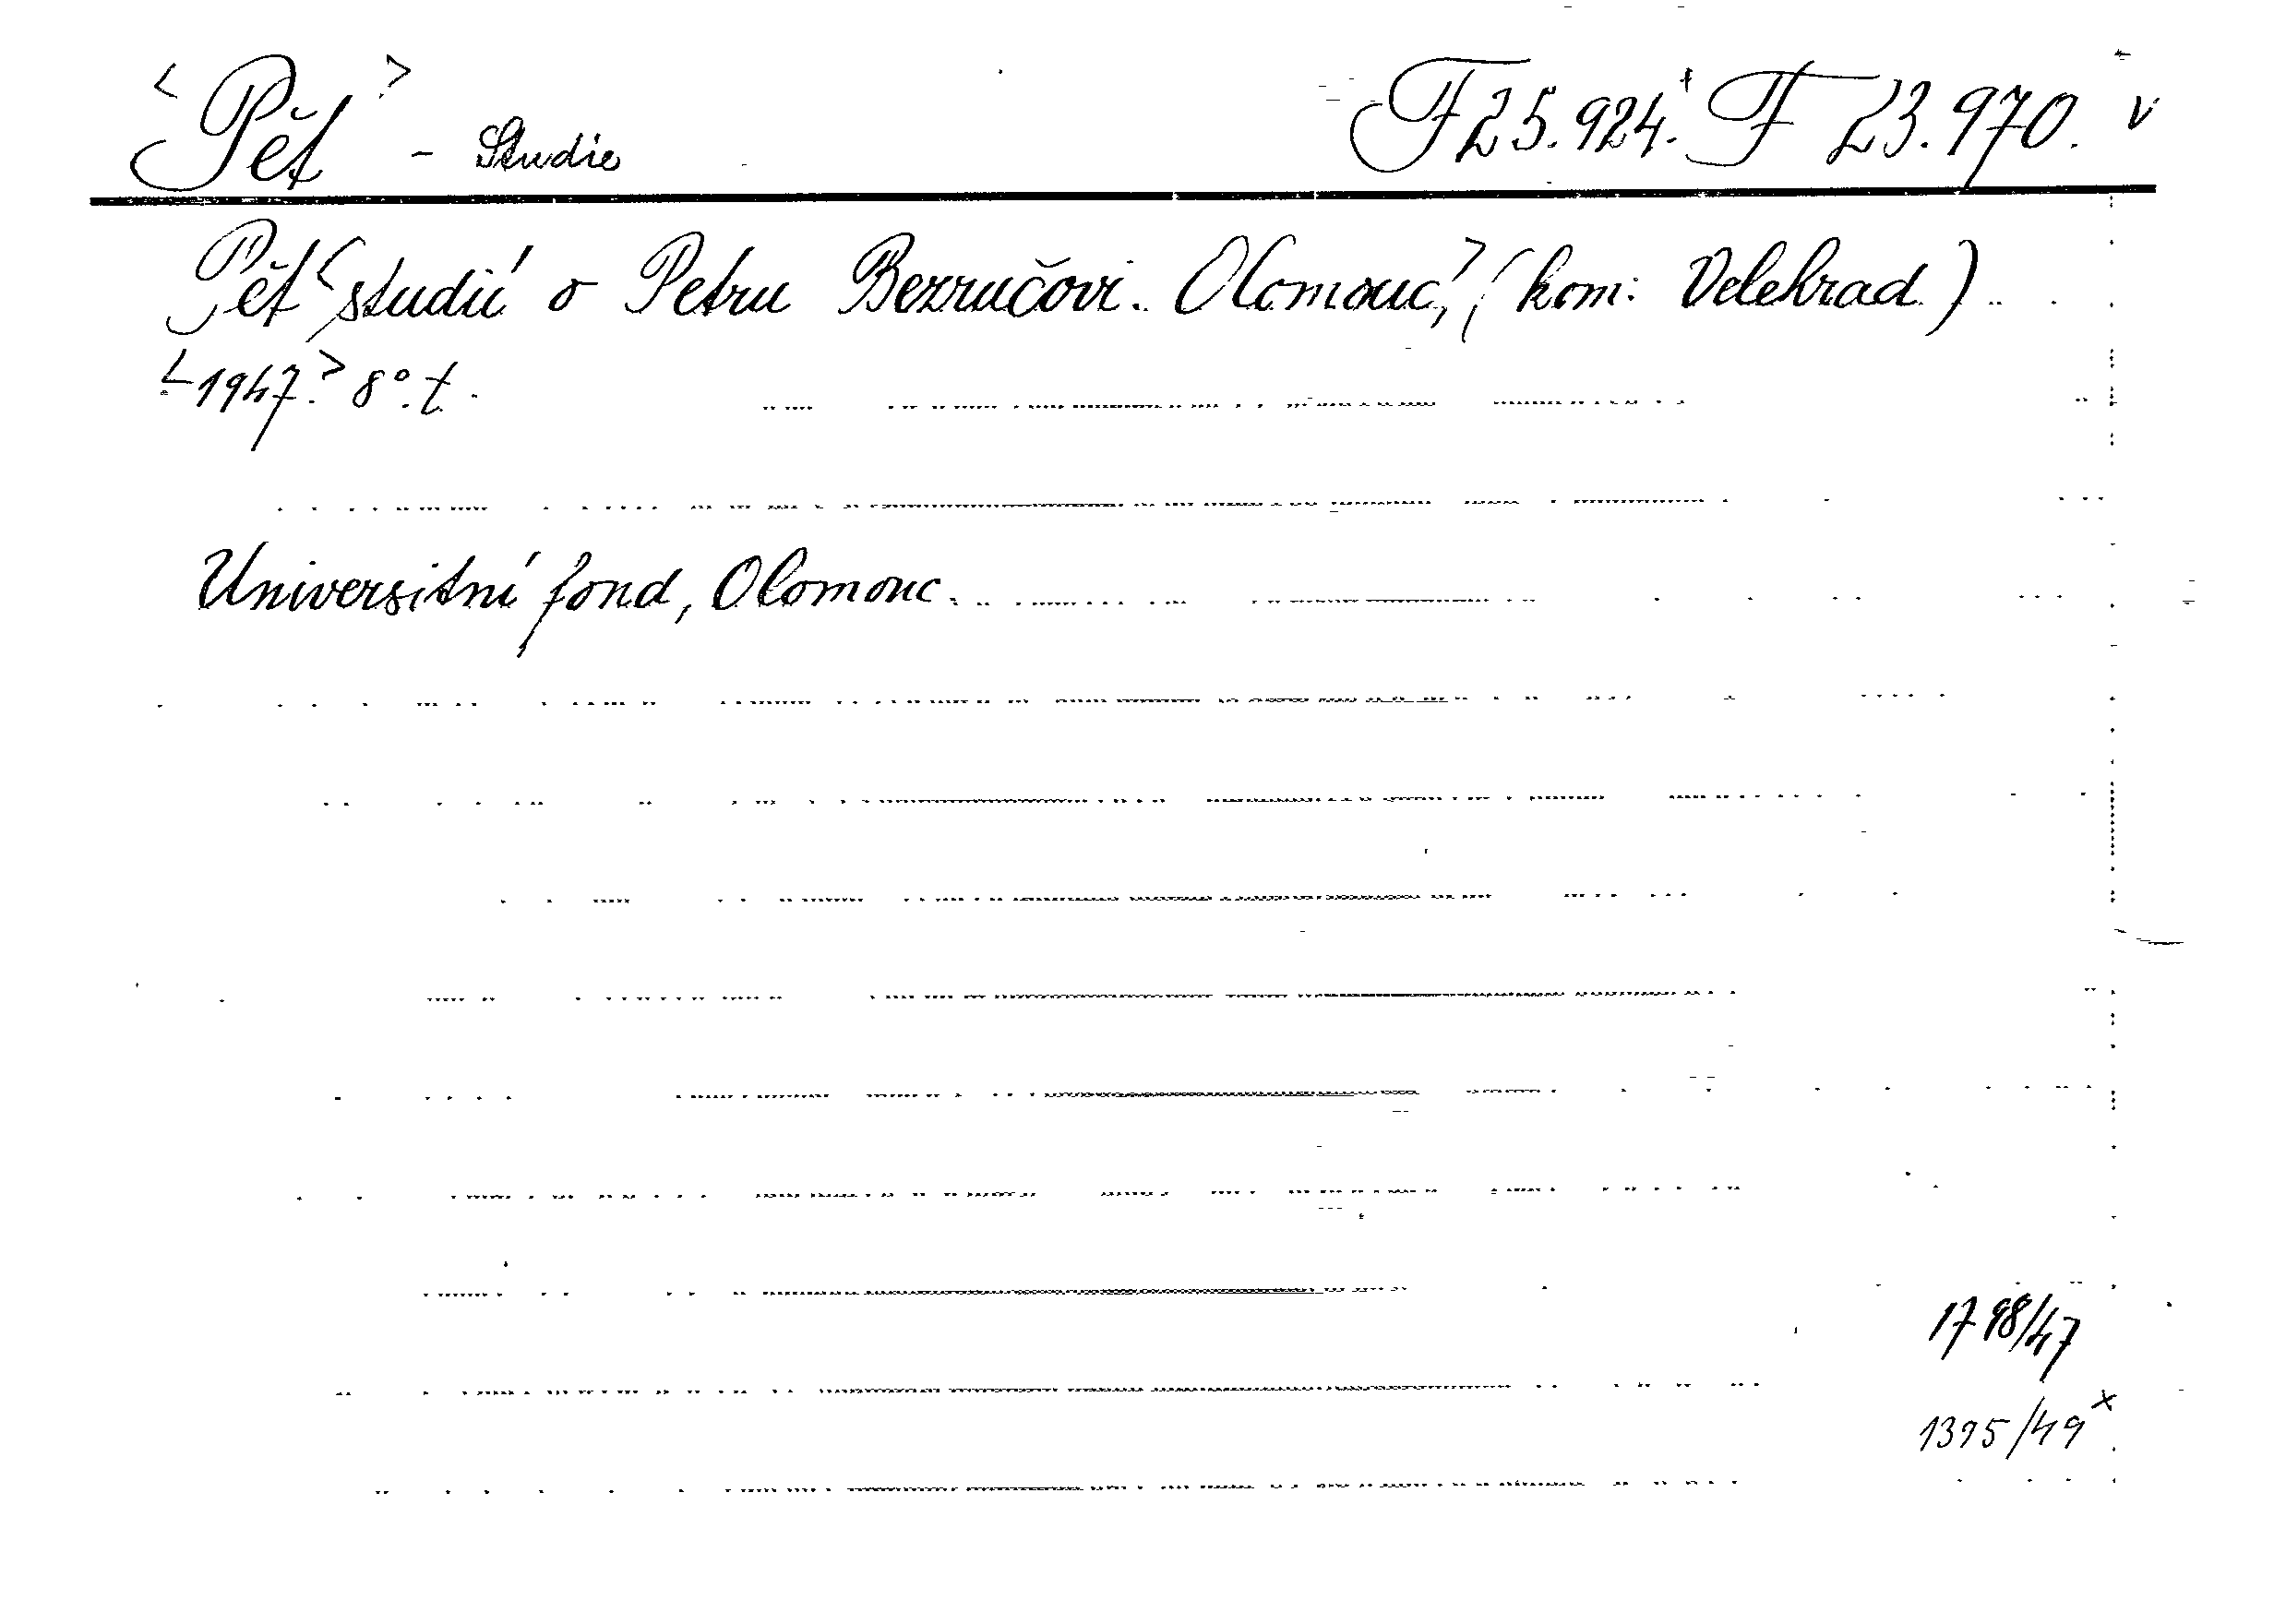 <Pět> - Studie F 25.924.⁺ F 23.970. v
Pět <studií o Petru Bezručovi. Olomouc,> (kom: Velehrad).
<1947.> 8°. t.
Universitní fond, Olomouc.
1798/47
1395/49 ˣ